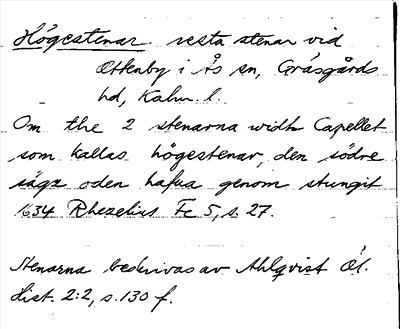 Högestenar resta stenar vid
Ottenby i Ås sn, Gräsgårds
hd, Kalm. l.
Om the 2 stenarna widh Capellet
som kallas högestenar, den södre
säga oden hafua genom stungit
1634 Rhezelius Fc 5, s. 27.
Stenarna beskrivas av Ahlqvist Öl.
Hist. 2:2, s. 130 f.